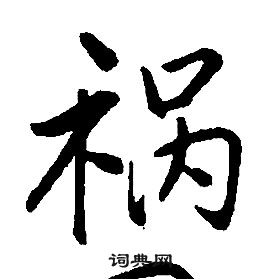 祸
词典网